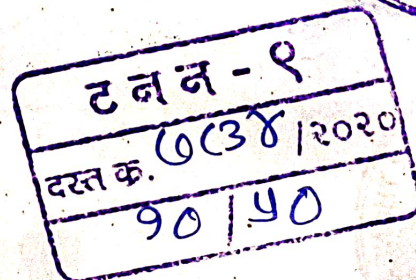 ट न न - ९
दस्त क्र. ७८३४ / २०२०
१० / ५०